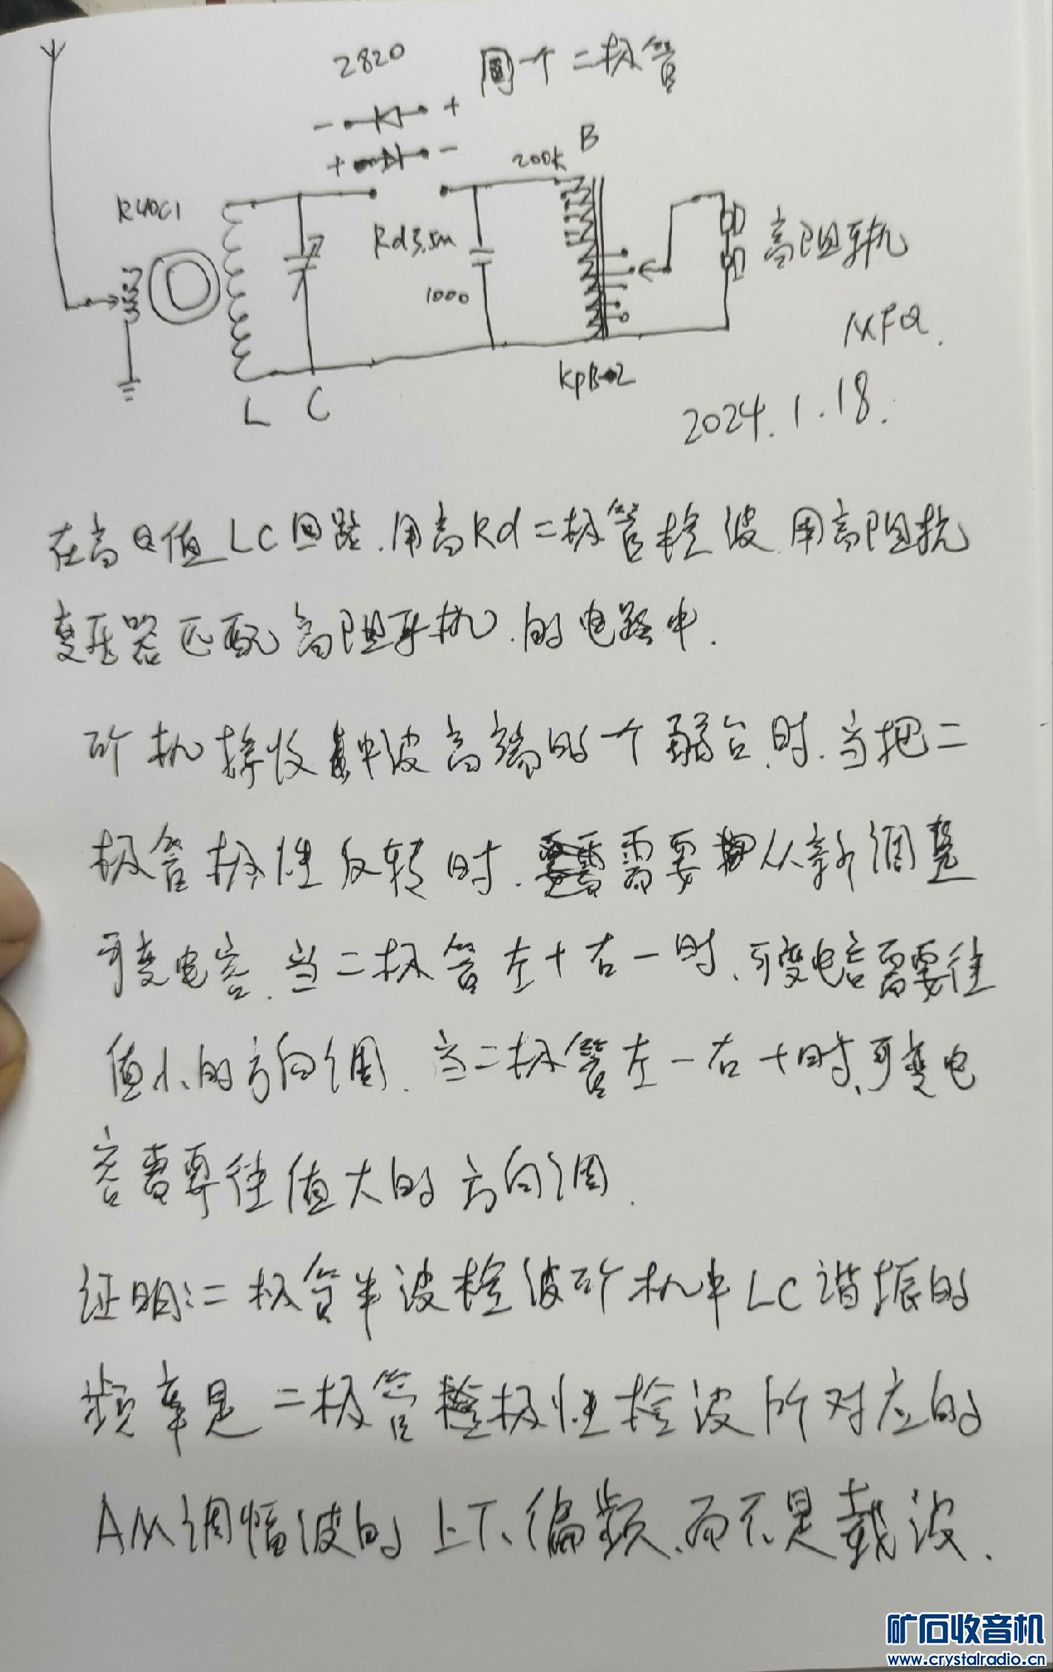 2820 同一个二极管
- +
+ -
200k B
R40C1
Rd3.5m
1000
高阻耳机
MFQ.
KpB-2
L C
2024.1.18.
在高Q值LC回路.用高Rd二极管检波用高阻抗
变压器匹配高阻耳机.的电路中.
矿机接收中波高端的一个弱台时.当把二
极管极性反转时.需要从新调整
可变电容.当二极管左+右-时.可变电容需要往
值小的方向调.当二极管左-右+时,可变电
容需要往值大的方向调.
证明:二极管半波检波矿机中LC谐振的
频率是二极管极性检波所对应的
AM调幅波的上下偏频.而不是载波.
矿石收音机
www.crystalradio.cn